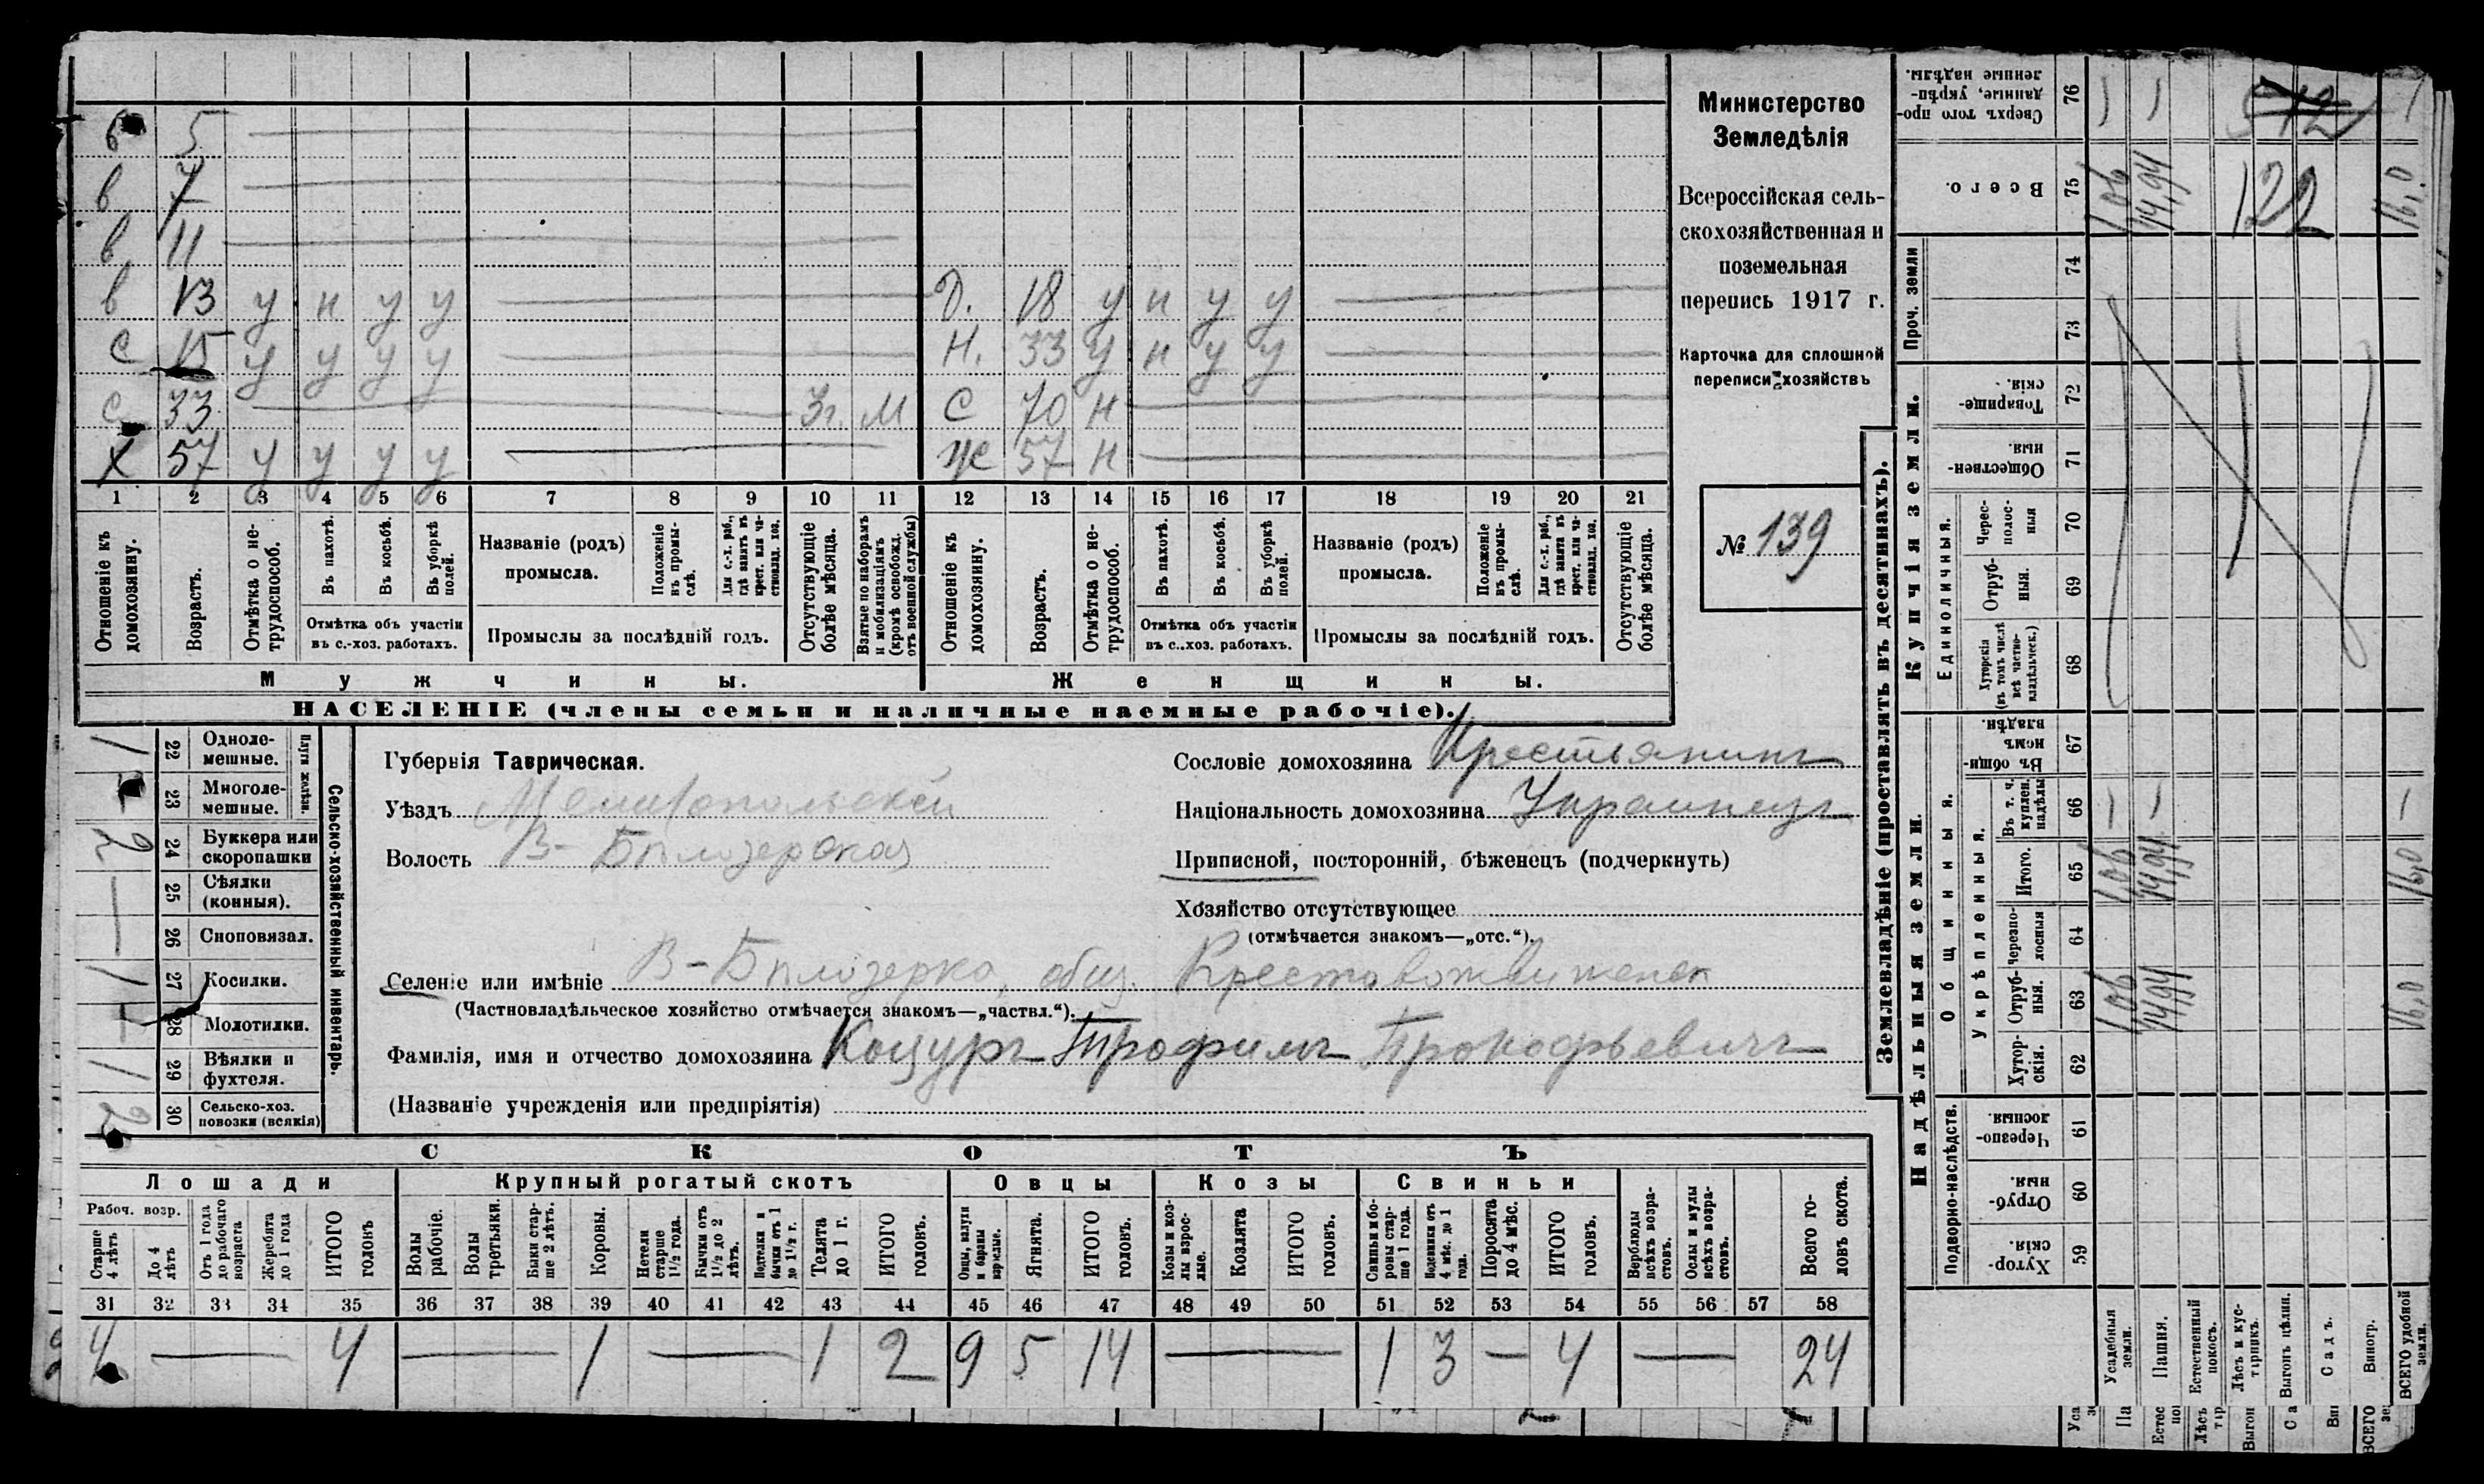 б 5
в 7
в 11
в 13 у н у у
с 15 у у у у
с 33 3г. м
х 57 у у у у
д. 18 у н у у
н. 33 у н у у
с 70 н
ж 57 н
1 2 3 4 5 6 7 8 9 10 11 12 13 14 15 16 17 18 19 20 21
Отношеніе къ домохозяину.
Возрастъ.
Отмѣтка о не-
трудоспособ.
Въ пахотѣ.
Въ косьбѣ.
Въ уборкѣ полей.
Отмѣтка объ участіи
въ с.-хоз. работахъ.
Названіе (родъ)
промысла.
Положеніе въ промы-
слѣ.
Для с.-х. раб., гдѣ занятъ въ крест. или ча-
стновлад. хоз.
Промыслы за послѣдній годъ.
Отсутствующіе
болѣе мѣсяца.
Взятые по наборамъ
и мобилизаціямъ
(кромѣ освобожд.
отъ военной службы)
Отношеніе къ
домохозяину.
Возрастъ.
Отмѣтка о не-
трудоспособ.
Въ пахотѣ.
Въ косьбѣ.
Въ уборкѣ полей.
Отмѣтка объ участіи
въ с.-хоз. работахъ.
Названіе (родъ)
промысла.
Положеніе въ промы-
слѣ.
Для с.-х. раб., гдѣ занята въ крест. или ча-
стновлад. хоз.
Промыслы за послѣдній годъ.
Отсутствующіе
болѣе мѣсяца.
Мужчины. Женщины.
НАСЕЛЕНІЕ (члены семьи и наличные наемные рабочіе).
Министерство
Земледѣлія
Всероссійская сель-
скохозяйственная и
поземельная
перепись 1917 г.
Карточка для сплошной
переписи хозяйствъ
№ 139
Сельско-хозяйственный инвентарь.
Плуги желѣзн.
1 22 Одноле-
мешные.
— 23 Многоле-
мешные.
2 24 Буккера или
скоропашки
— 25 Сѣялки
(конныя).
— 26 Сноповязал.
1 27 Косилки.
— 28 Молотилки.
1 29 Вѣялки и
фухтеля.
2 30 Сельско-хоз.
повозки (всякія)
Губернія Таврическая.
Уѣздъ Мелитопольскій
Волость В-Бѣлозерская
Сословіе домохозяина Крестьянинъ
Національность домохозяина Украинецъ
Приписной, посторонній, бѣженецъ (подчеркнуть)
Хозяйство отсутствующее
(отмѣчается знакомъ—„отс.“).
Селеніе или имѣніе В-Бѣлозерка, общ.
(Частновладѣльческое хозяйство отмѣчается знакомъ—„частвл.“).
Фамилія, имя и отчество домохозяина Коцуръ Трофимъ Прокофьевичъ
(Названіе учрежденія или предпріятія)
СКОТЪ
Лошади Крупный рогатый скотъ Овцы Козы Свиньи
Рабоч. возр.
Старше 4 лѣтъ
До 4 лѣтъ
Отъ 1 года до рабочаго возраста
Жеребята до 1 года
ИТОГО головъ
Волы рабочіе.
Волы третьяки.
Быки стар-
ше 2 лѣтъ.
Коровы.
Нетели старше 1 1/2 года.
Бычки отъ 1 1/2 до 2 лѣтъ.
Подтелки и бычки отъ 1 до 1 1/2 г.
Телята до 1 г.
ИТОГО головъ.
Овцы, валухи и бараны взрослые.
Ягнята.
ИТОГО головъ.
Козы и коз-
лы взрос-
лые.
Козлята
ИТОГО головъ.
Свиньи и бо-
ровы стар-
ше 1 года.
Подсвинки отъ 4 мѣс. до 1 года.
Поросята до 4 мѣс.
ИТОГО головъ.
Верблюды всѣхъ возра-
стовъ.
Ослы и мулы всѣхъ возра-
стовъ.
Всего го-
ловъ скота.
31 32 33 34 35 36 37 38 39 40 41 42 43 44 45 46 47 48 49 50 51 52 53 54 55 56 57 58
4 — 4 — 1 — 1 2 9 5 14 — 1 3 — 4 — 24
Землевладѣніе (проставлять въ десятинахъ).
Купчія земли.
Надѣльныя земли.
Сверхъ того про-
данные, укрѣп-
ленные надѣлы. 76 512
Всего. 75 1,06 14,94 122 16,0
Проч. земли 74 73
Товарище-
скія. 72
Обществен-
ныя. 71
Единоличныя.
Черес-
полос-
ныя 70
Отруб-
ныя. 69
Хуторскія
(въ томъ числѣ
всѣ частно-
владѣльческ.) 68
Общинныя.
Въ общи-
номъ
владѣн. 67
Укрѣпленныя.
Въ т. ч.
куплен.
надѣлы 66 — — —
Итого. 65 1,06 14,94 16,0
Черезпо-
лосныя 64
Отруб-
ныя. 63 1,06 14,94 16,0
Хутор-
скія. 62
Подворно-наслѣдств.
Черезпо-
лосныя 61
Отруб-
ныя. 60
Хутор-
скія. 59
Усадебныя земли.
Пашня.
Естественный покосъ.
Лѣсъ и кус-
тарникъ.
Выгонъ цѣлин.
Садъ.
Виногр.
ВСЕГО удобной земли.